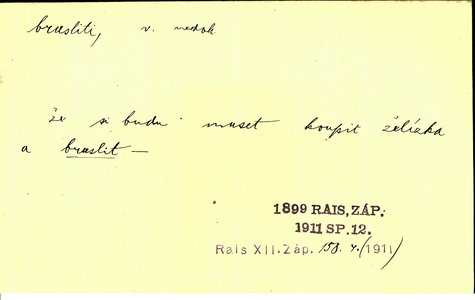 brusliti, v. nedok.
že si budu muset koupit želízka
a bruslit —
1899 RAIS, ZÁP.
1911 SP. 12.
Rais XII. Záp. 158. r. (1911)